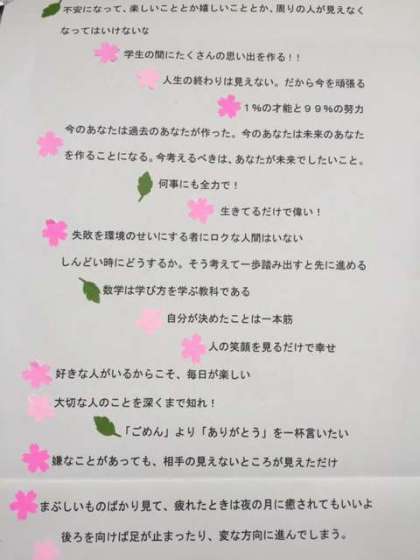 不安になって、楽しいこととか嬉しいこととか、周りの人が見えなく
なってはいけないな
学生の間にたくさんの思い出を作る！！
人生の終わりは見えない。だから今を頑張る
１％の才能と９９％の努力
今のあなたは過去のあなたが作った。今のあなたは未来のあなた
を作ることになる。今考えるべきは、あなたが未来でしたいこと。
何事にも全力で！
生きてるだけで偉い！
失敗を環境のせいにする者にロクな人間はいない
しんどい時にどうするか。そう考えて一歩踏み出すと先に進める
数学は学び方を学ぶ教科である
自分が決めたことは一本筋
人の笑顔を見るだけで幸せ
好きな人がいるからこそ、毎日が楽しい
大切な人のことを深くまで知れ！
「ごめん」より「ありがとう」を一杯言いたい
嫌なことがあっても、相手の見えないところが見えただけ
まぶしいものばかり見て、疲れたときは夜の月に癒されてもいいよ
後ろを向けば足が止まったり、変な方向に進んでしまう。